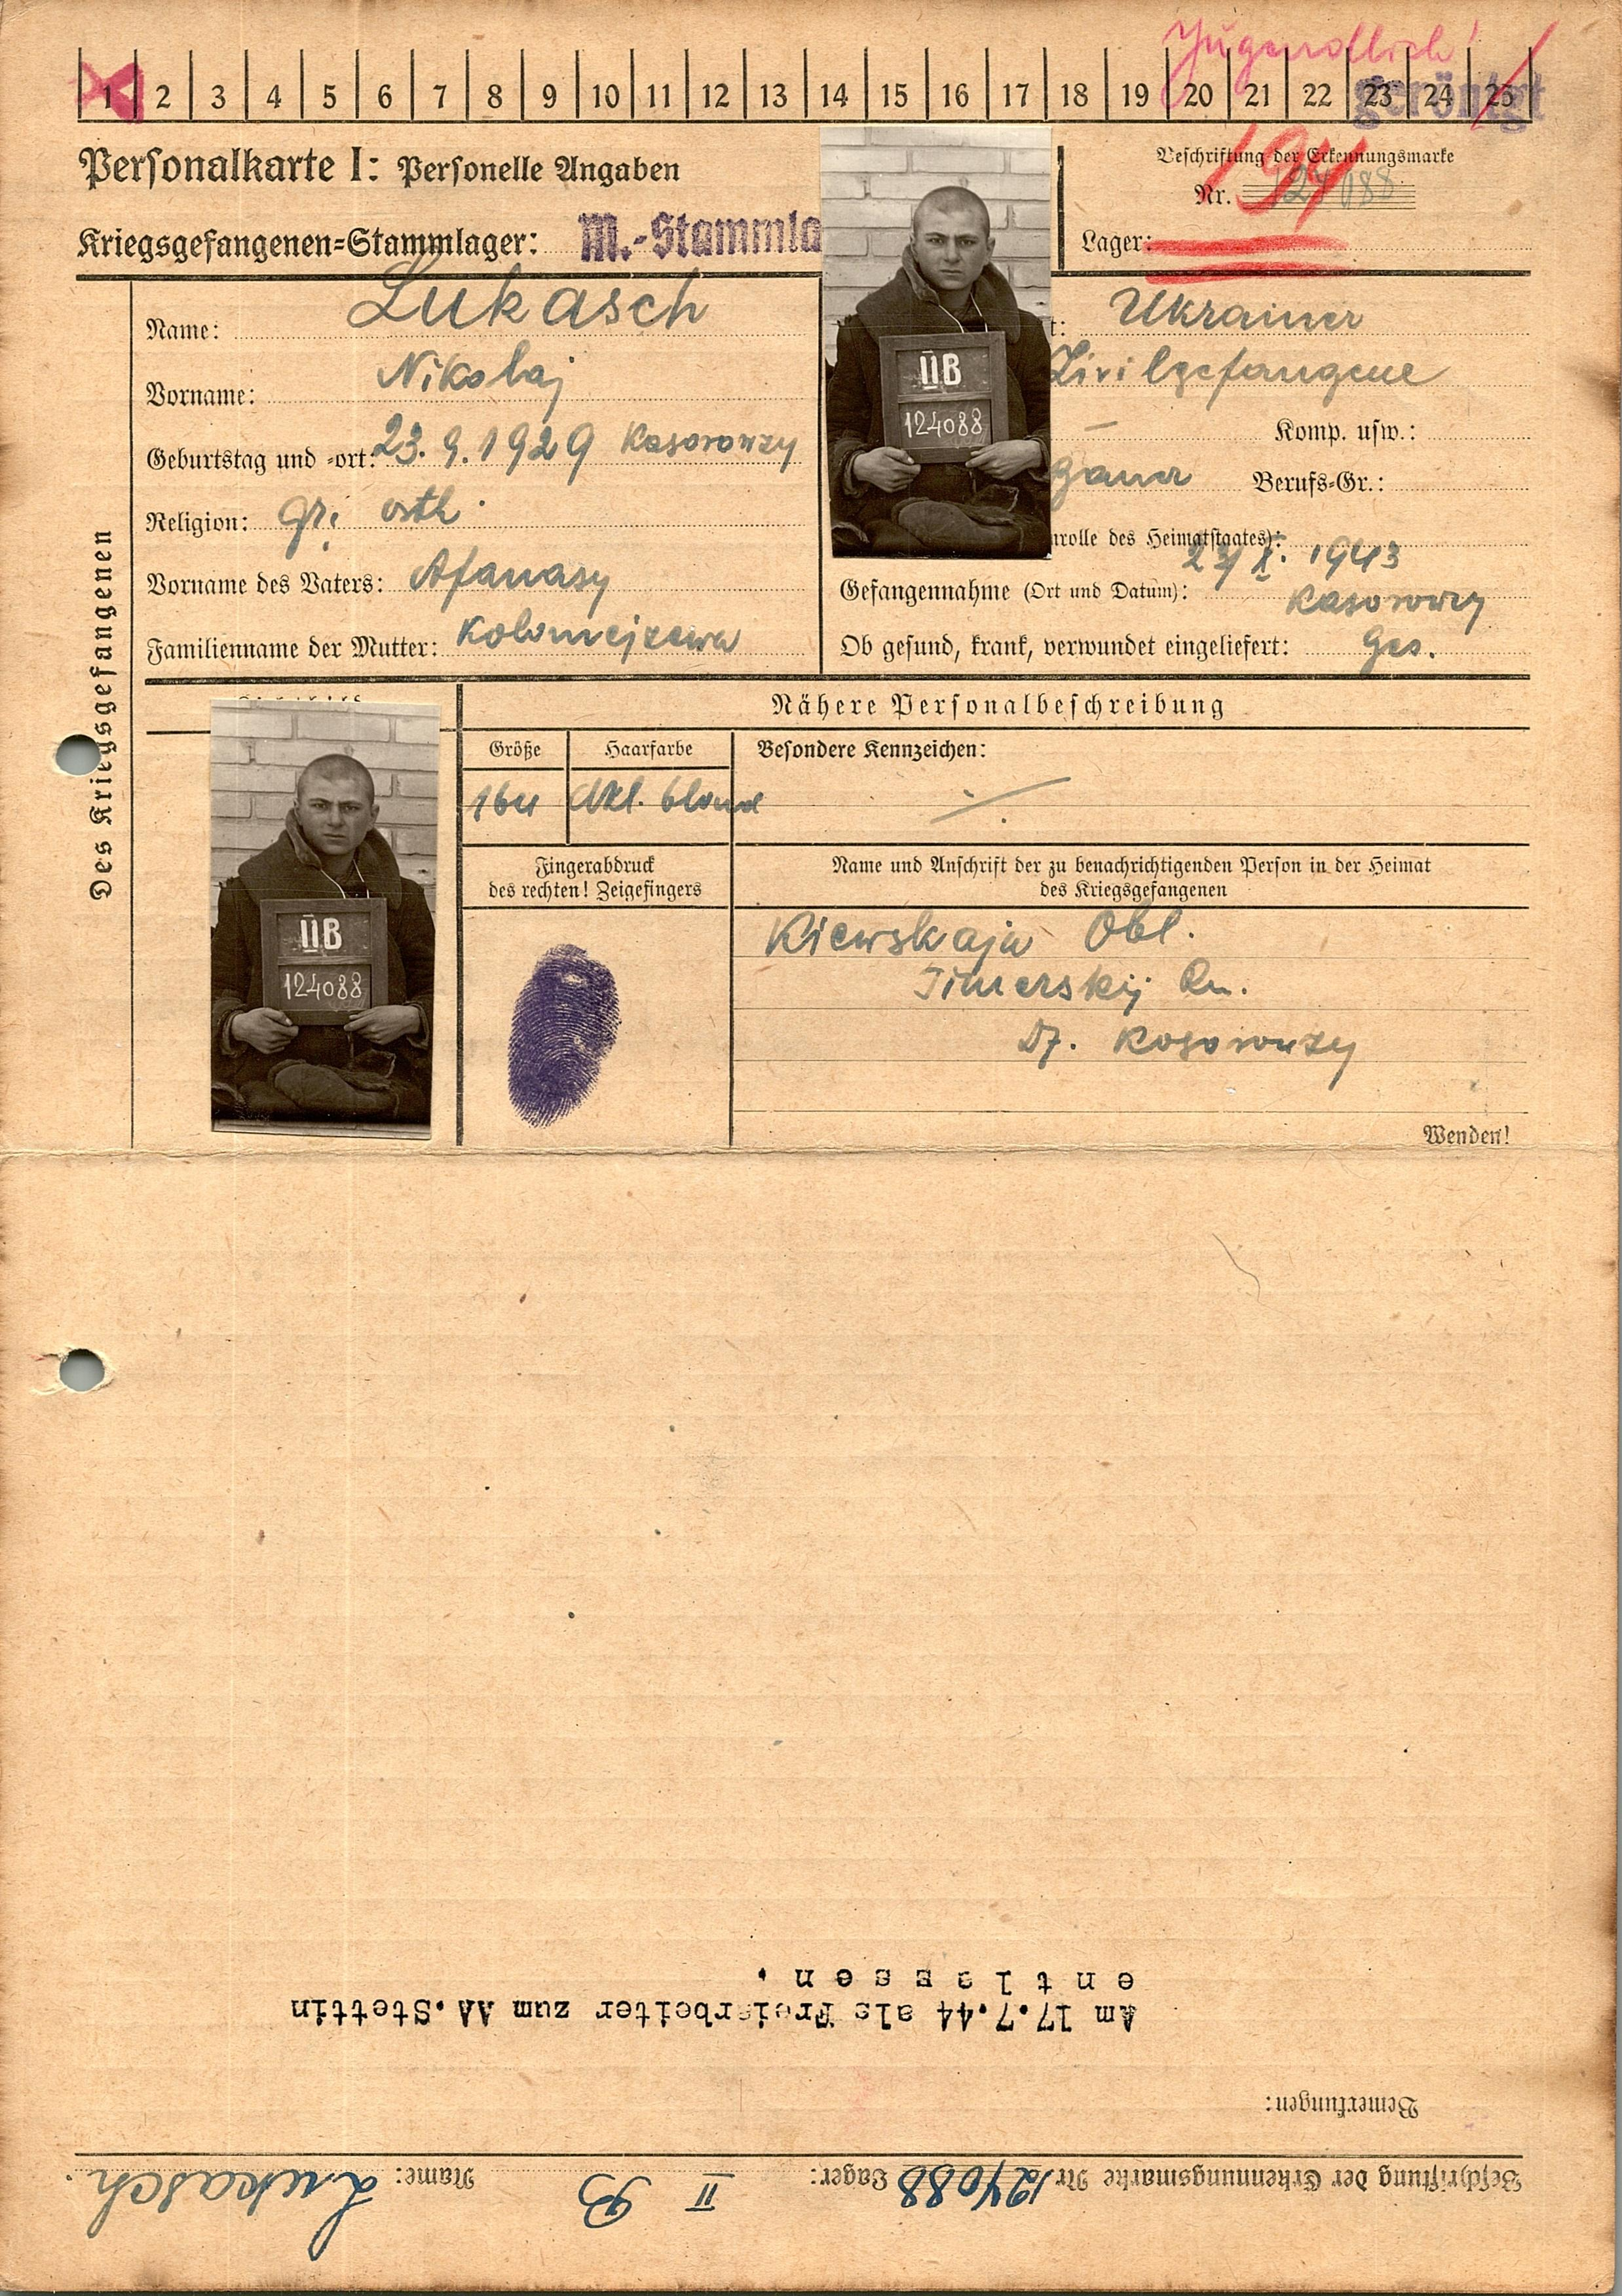 Jugendlich!
1 2 3 4 5 6 7 8 9 10 11 12 13 14 15 16 17 18 19 20 21 22 23 24 25
geröntgt
Personalkarte I: Personelle Angaben
Beschriftung der Erkennungsmarke
Nr. 124088
194
Kriegsgefangenen-Stammlager: M.-Stammla
Lager:
Des Kriegsgefangenen
Name: Lukasch
Vorname: Nikolaj
Geburtstag und -ort: 23. 9. 1929 Kasorowzy
Religion: gr. orth.
Vorname des Vaters: Afanasy
Familienname der Mutter: Kolomejzewa
t: Ukrainer
Zivilgefangene
– Komp. usw.:
Berufs-Gr.:
nrolle des Heimatstaates):
Gefangennahme (Ort und Datum): 1943
Kasorowzy
Ob gesund, krank, verwundet eingeliefert: Ges.
IIB
124088
Nähere Personalbeschreibung
Größe
Haarfarbe
Besondere Kennzeichen:
164
dkl. blond
Fingerabdruck
des rechten! Zeigefingers
Name und Anschrift der zu benachrichtigenden Person in der Heimat
des Kriegsgefangenen
Kiewskaja Obl.
Dimerskij Rn.
Df. Kosorowzy
IIB
124088
Wenden!
Beschriftung der Erkennungsmarke Nr 124088 Lager: II B Name: Lukasch.
Bemerkungen:
Am 17.7.44 als Freiarbeiter zum AA.Stettin
entlassen.